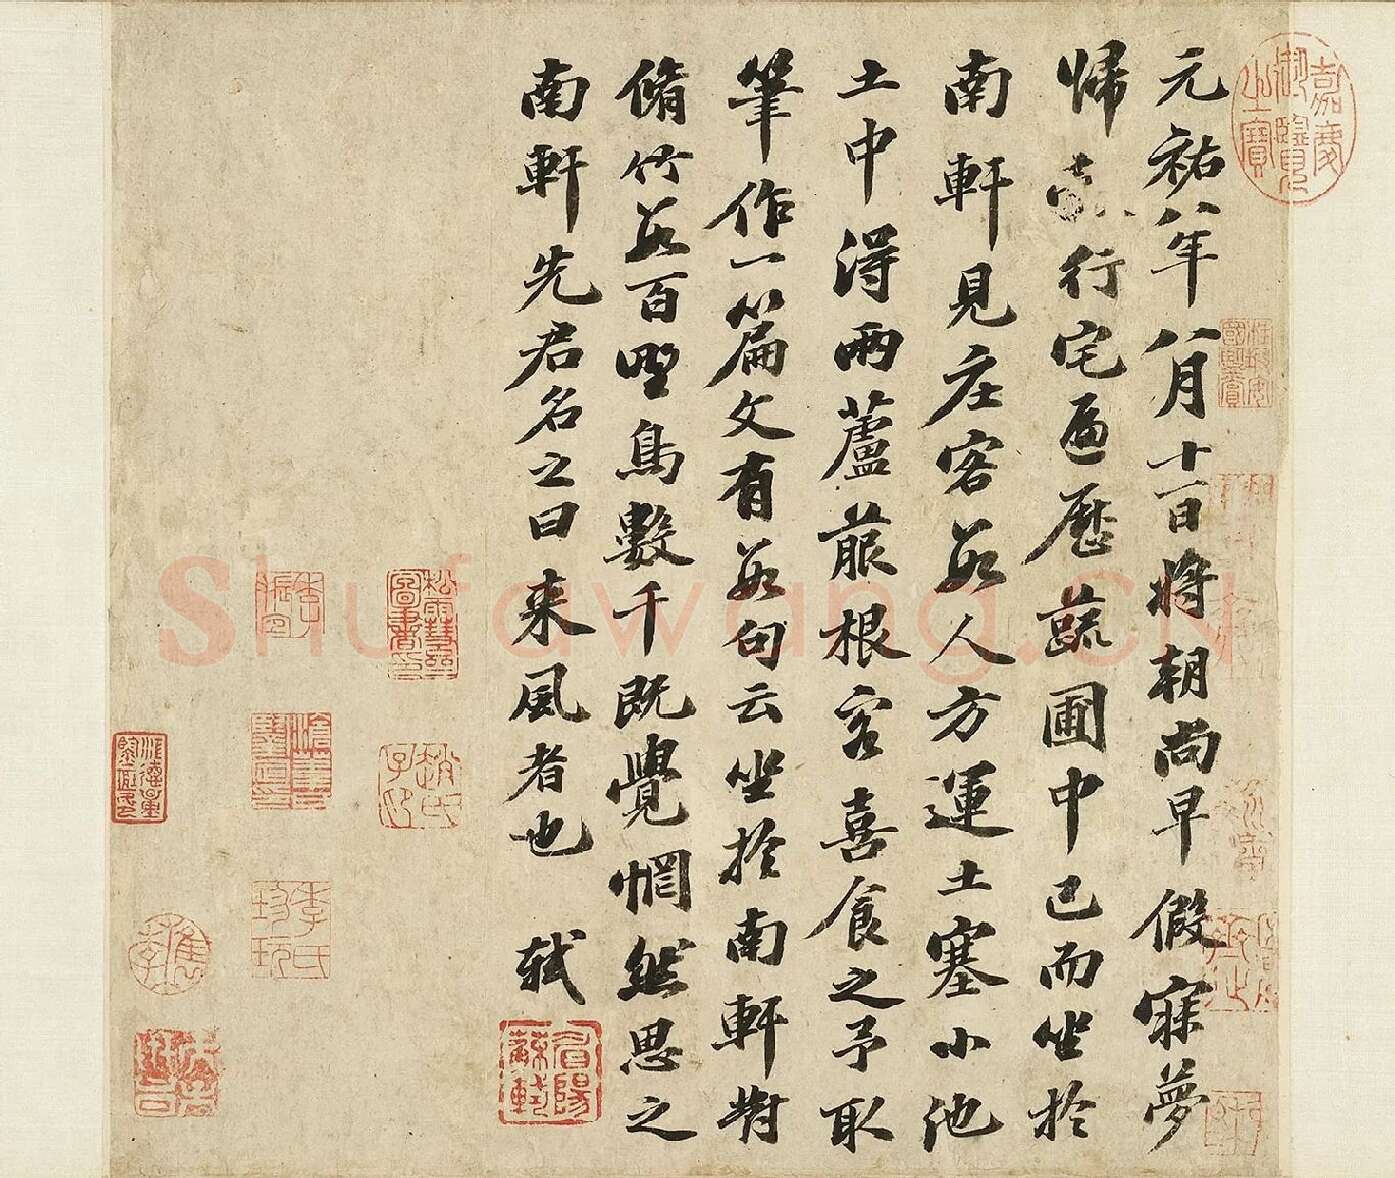 元祐八年八月十一日將朝尚早假寐夢
歸行宅遍歷蔬圃中已而坐於
南軒見庄客數人方運土塞小池
土中得兩蘆菔根客喜食之予取
筆作一篇文有數句云坐於南軒對
脩竹數百野鳥數千既覺惘然思之
南軒先君名之曰來風者也 軾
眉陽蘇軾
嘉慶御覽之寶
趙氏子印
李氏珍玩
Shufawang.CN